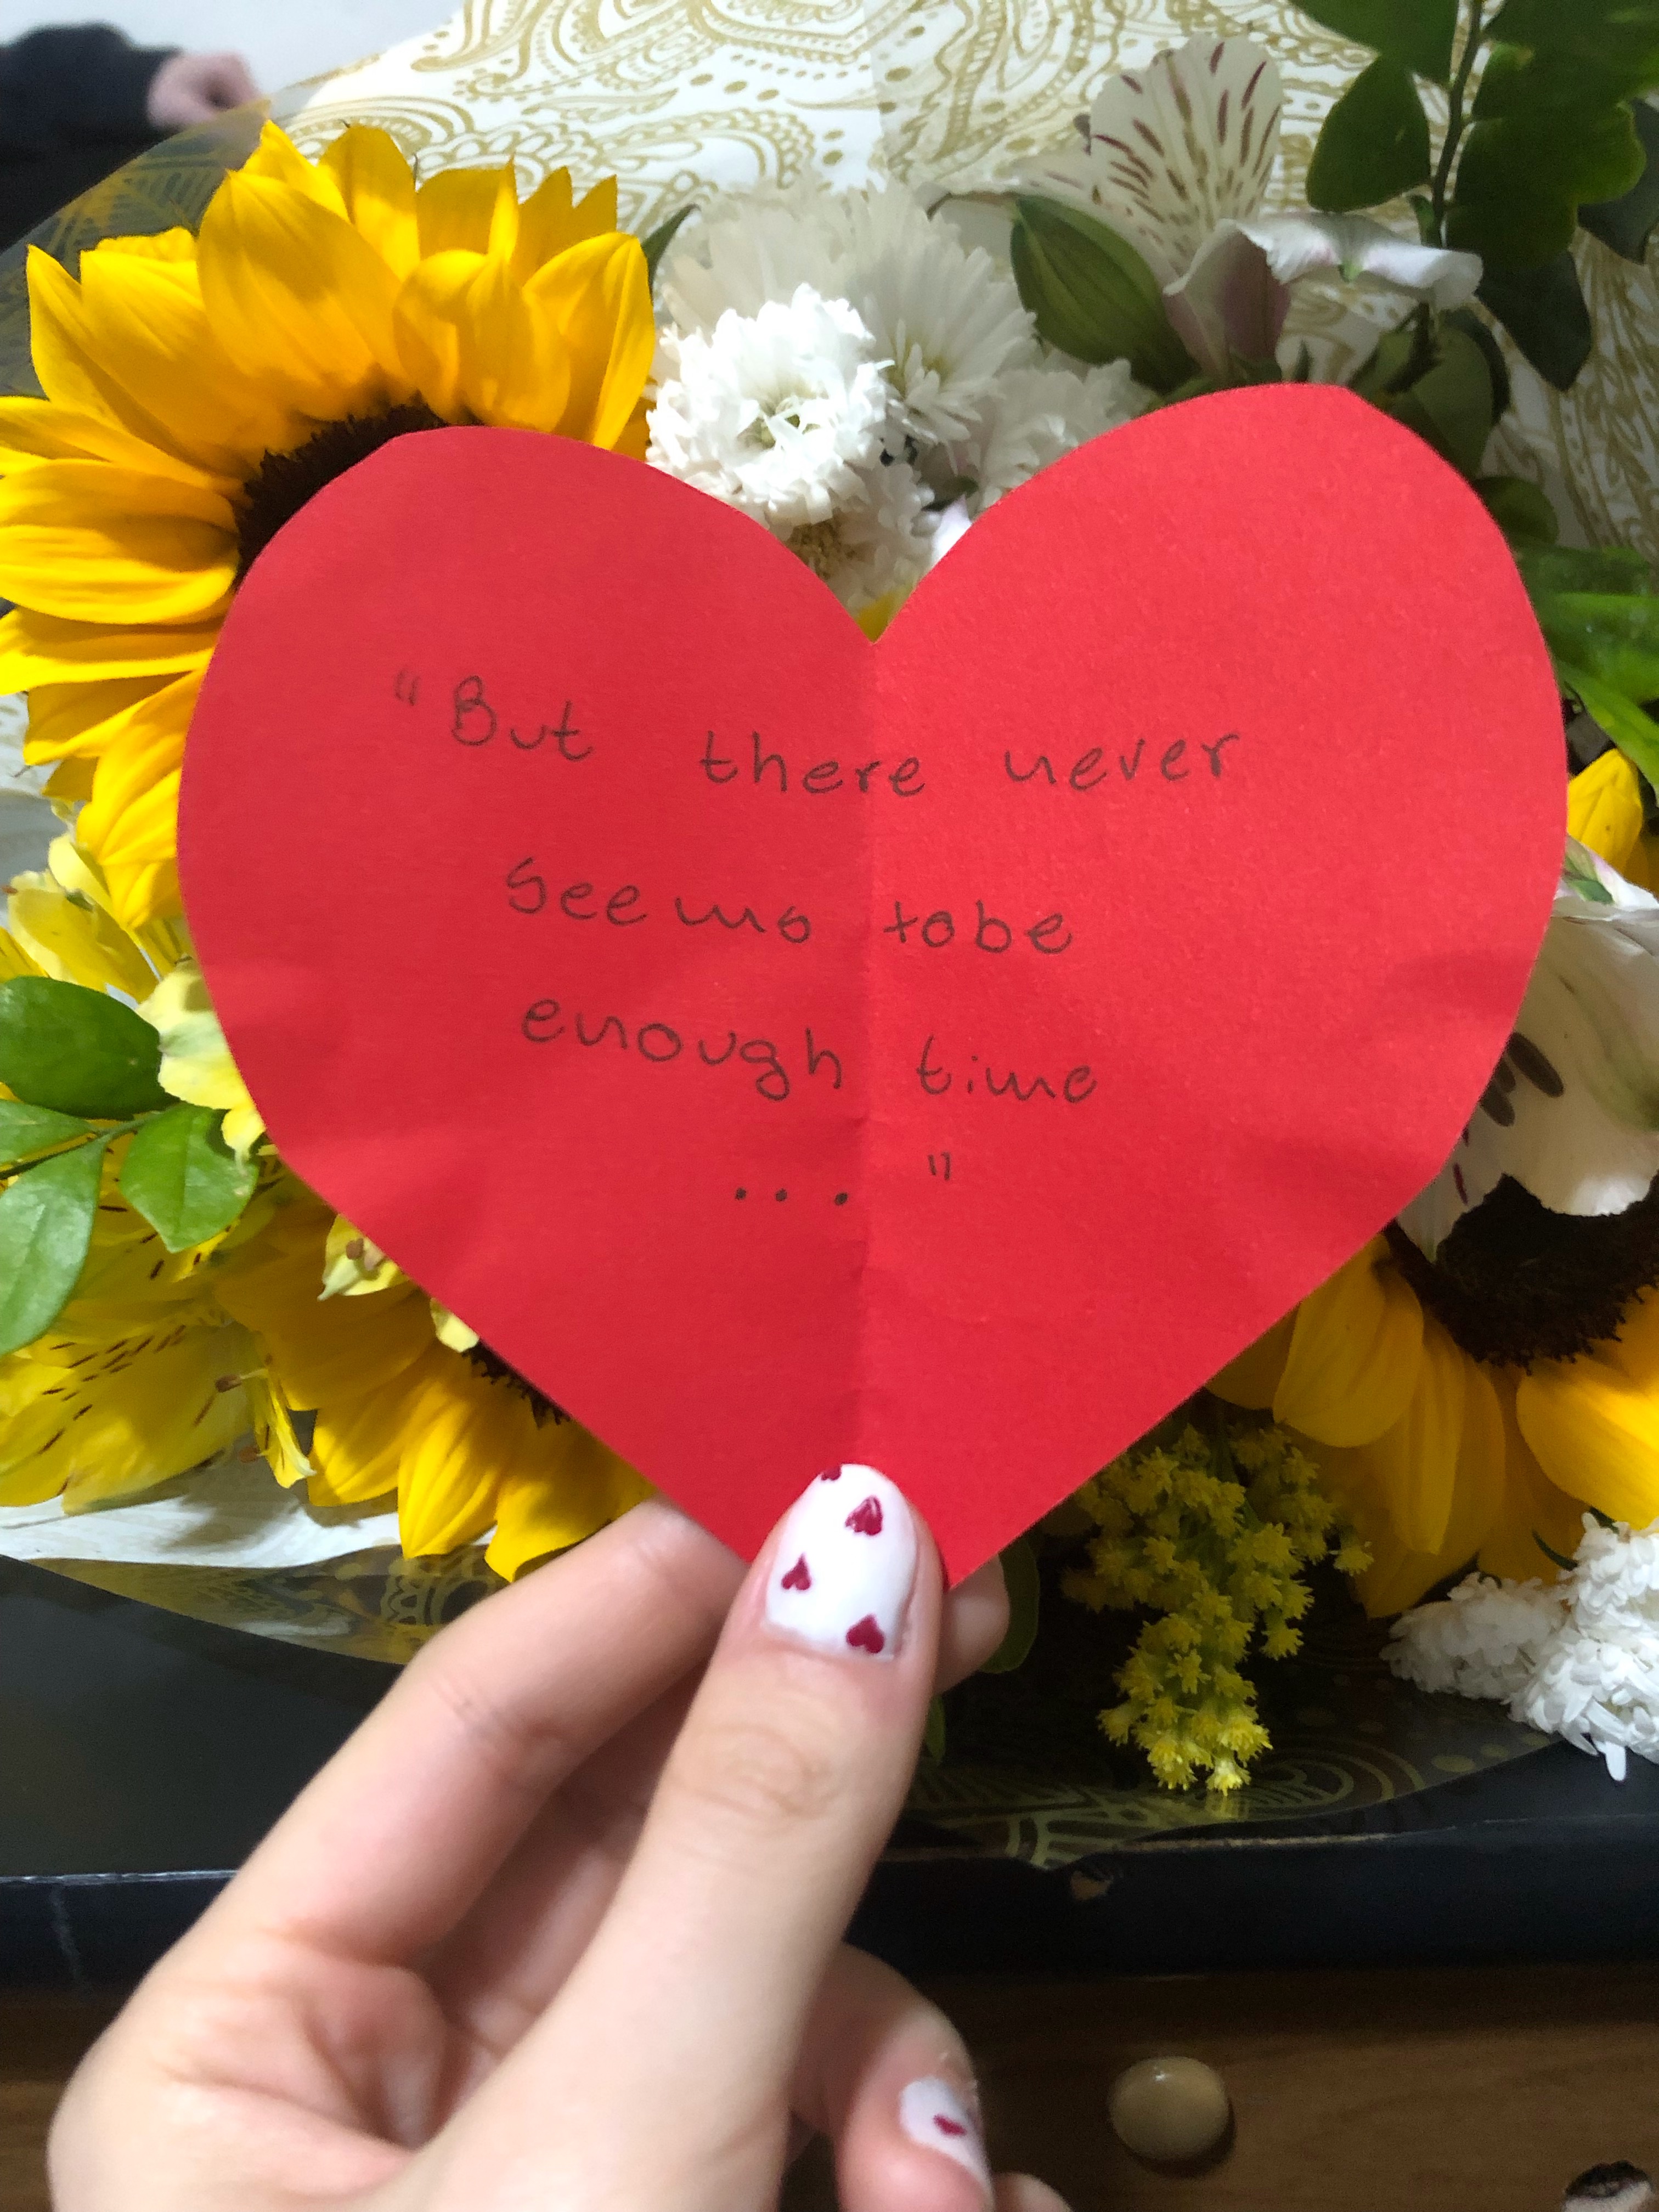 "But there never
seems tobe
enough time
... "